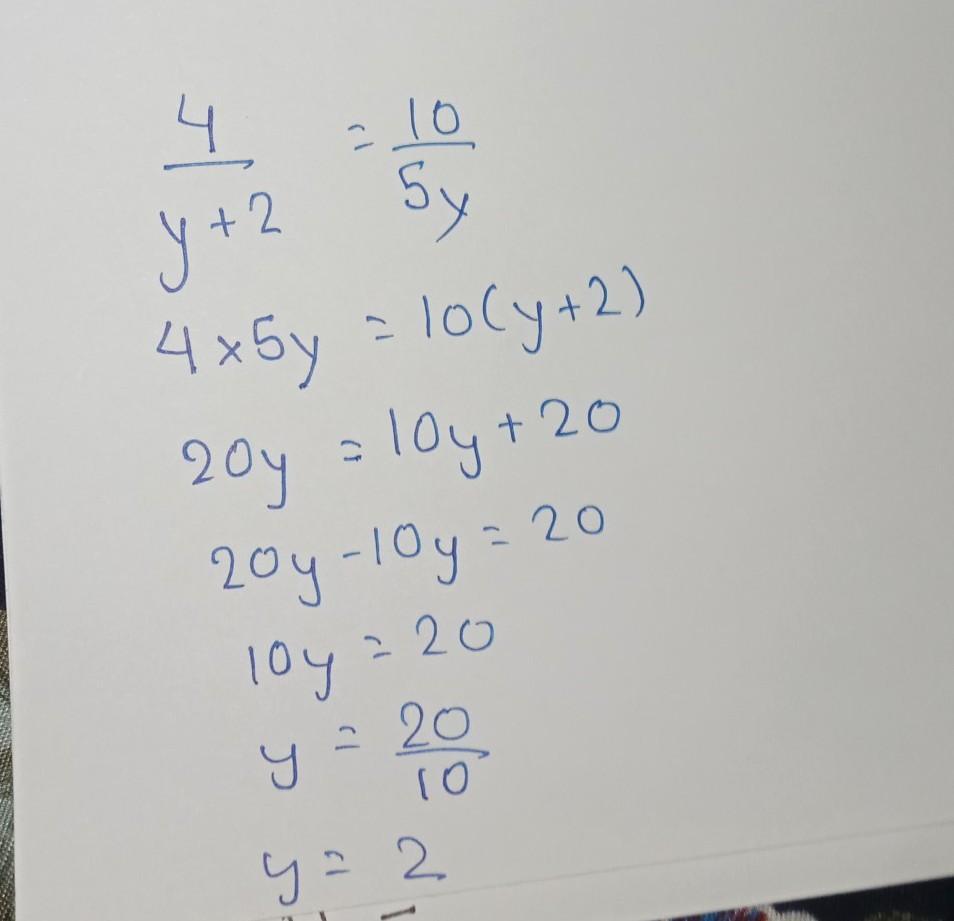 4/(y+2) = 10/5y
4×5y = 10(y+2)
20y = 10y + 20
20y - 10y = 20
10y = 20
y = 20/10
y = 2